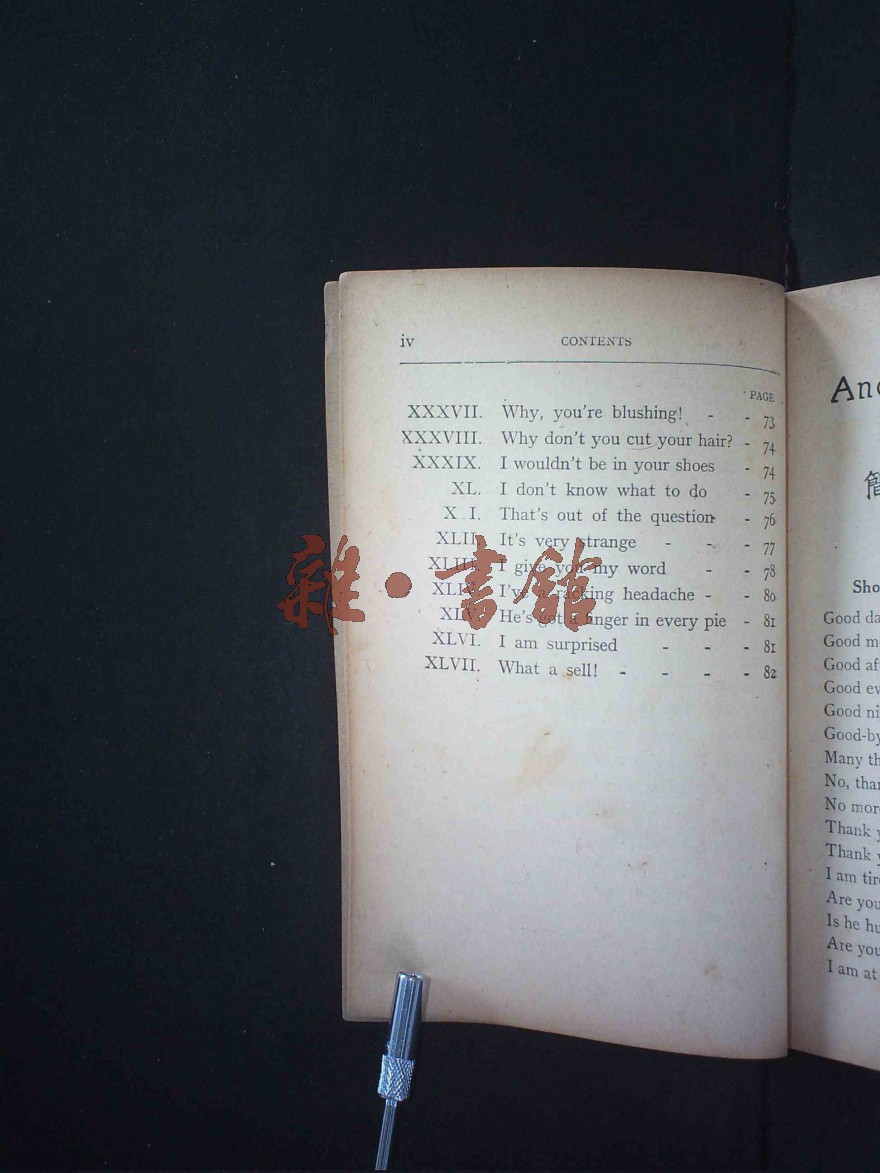 iv CONTENTS
PAGE
XXXVII. Why, you're blushing! - - 73
XXXVIII. Why don't you cut your hair? - 74
XXXIX. I wouldn't be in your shoes - 74
XL. I don't know what to do - 75
X I. That's out of the question - 76
XLII. It's very strange - - - 77
XLIII. I give you my word - - 78
XLIV. I've a racking headache - - 80
XLV. He's got a finger in every pie - 81
XLVI. I am surprised - - - 81
XLVII. What a sell! - - - - 82
雜・書館
簡
Good
Good
Good
Good
Good
Many
No,
No
Thank
Thank
I am
Are you
Is he
Are you
I am at